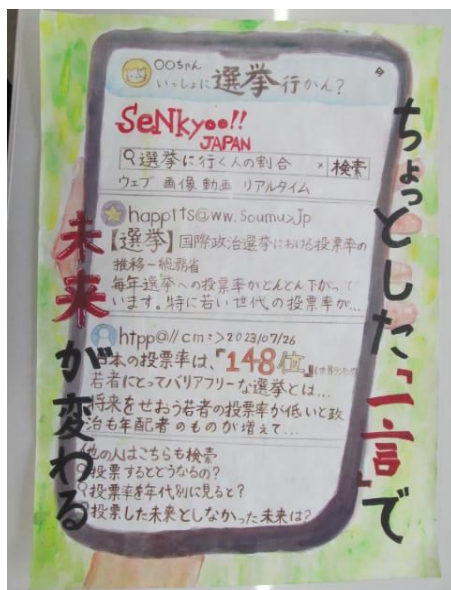 ちょっとした『一言』で
未来が変わる
〇〇ちゃん
いっしょに選挙行かん?
SeNkyoo!!
JAPAN
選挙に行く人の割合 × 検索
ウェブ 画像 動画 リアルタイム
happ1ts@ww.soumu>Jp
【選挙】国際政治選挙における投票率の
推移-総務省
毎年選挙への投票率がどんどん下がって
います。特に若い世代の投票率が...
htpp@//cm=>2023/07/26
日本の投票率は、『148位』
若者にとってバリアフリーな選挙とは...
将来をせおう若者の投票率が低いと政
治も年配者のものが増えて...
他の人はこちらも検索
投票するとどうなるの?
投票率を年代別に見ると?
投票した未来としなかった未来は?